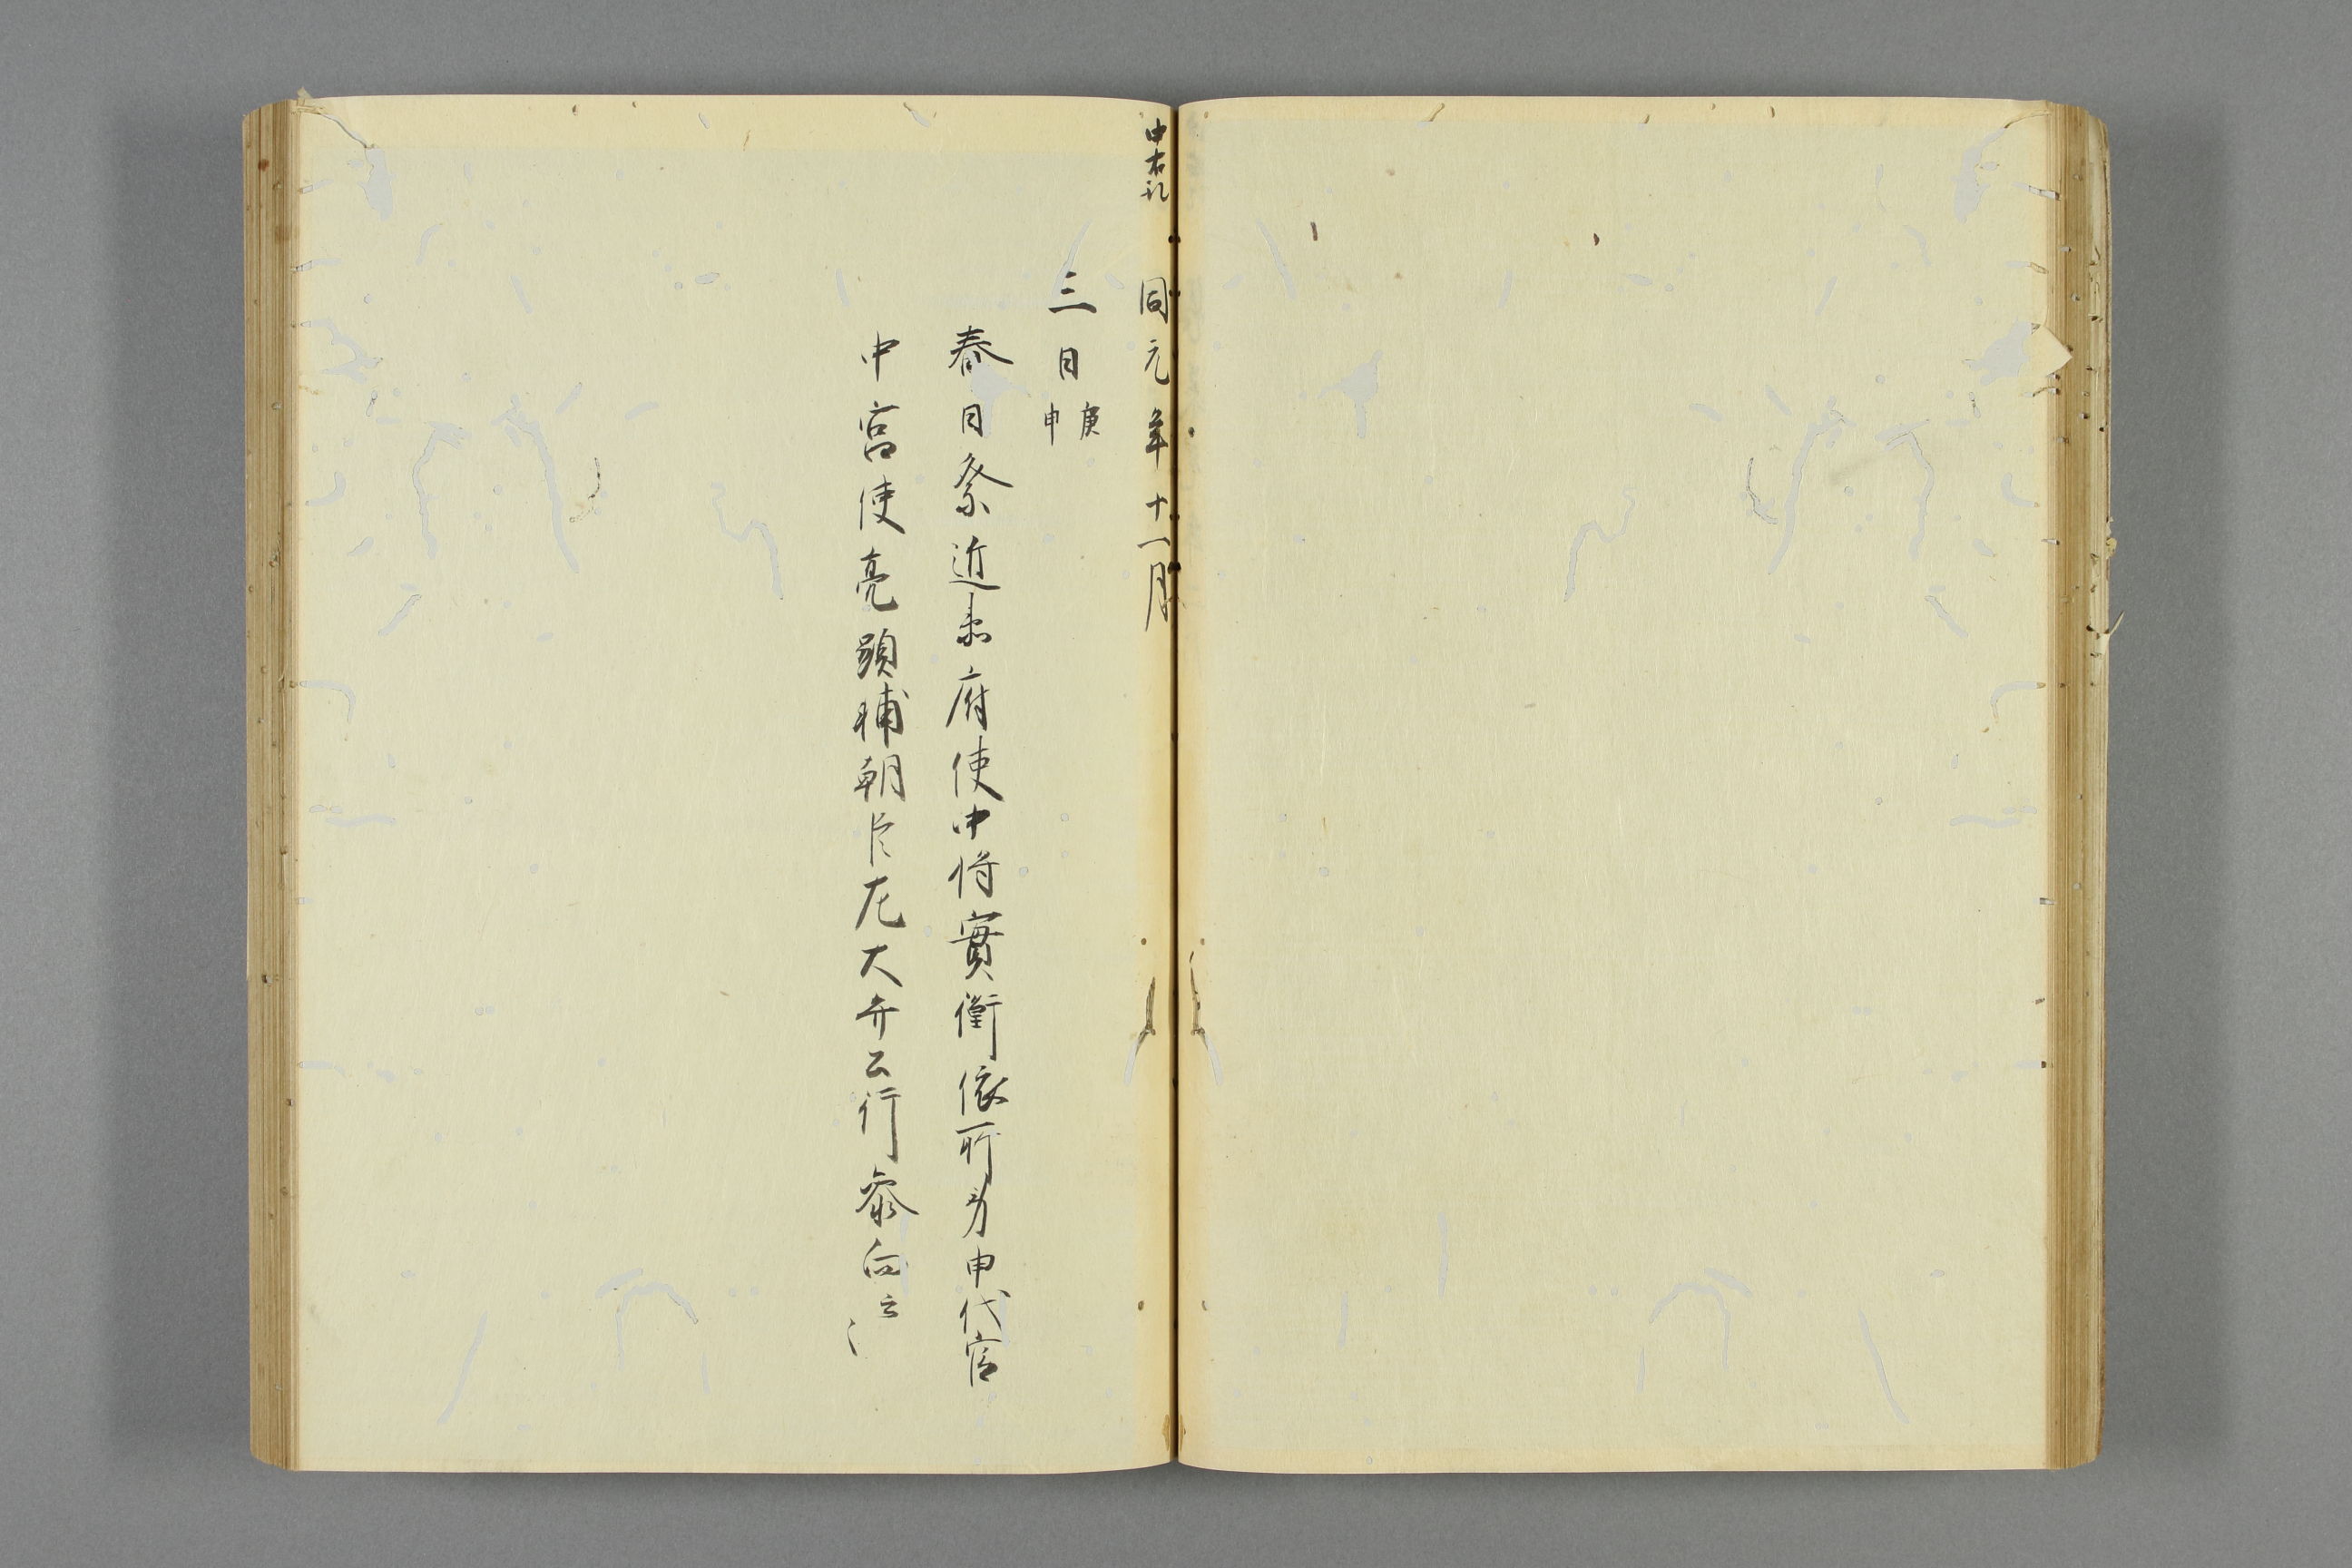 中右記
同元年十一月
三日庚申
春日祭近衛府使中将實衡依所労申代官
中宮使亮顕輔朝臣左大弁公行参向云〻